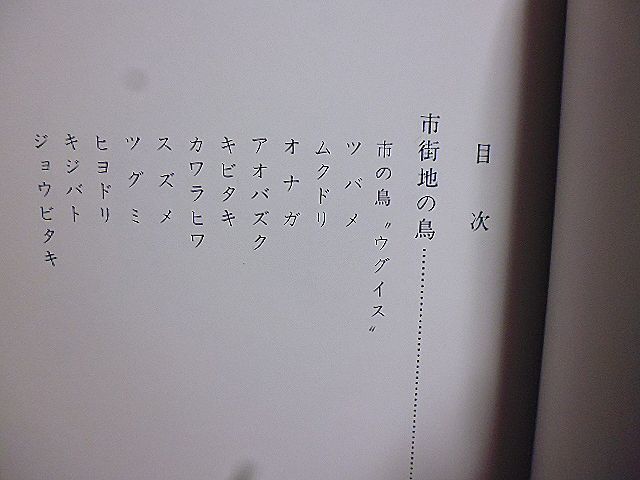 目次
市街地の鳥……………………
市の鳥〝ウグイス〟
ツバメ
ムクドリ
オナガ
アオバズク
キビタキ
カワラヒワ
スズメ
ツグミ
ヒヨドリ
キジバト
ジョウビタキ